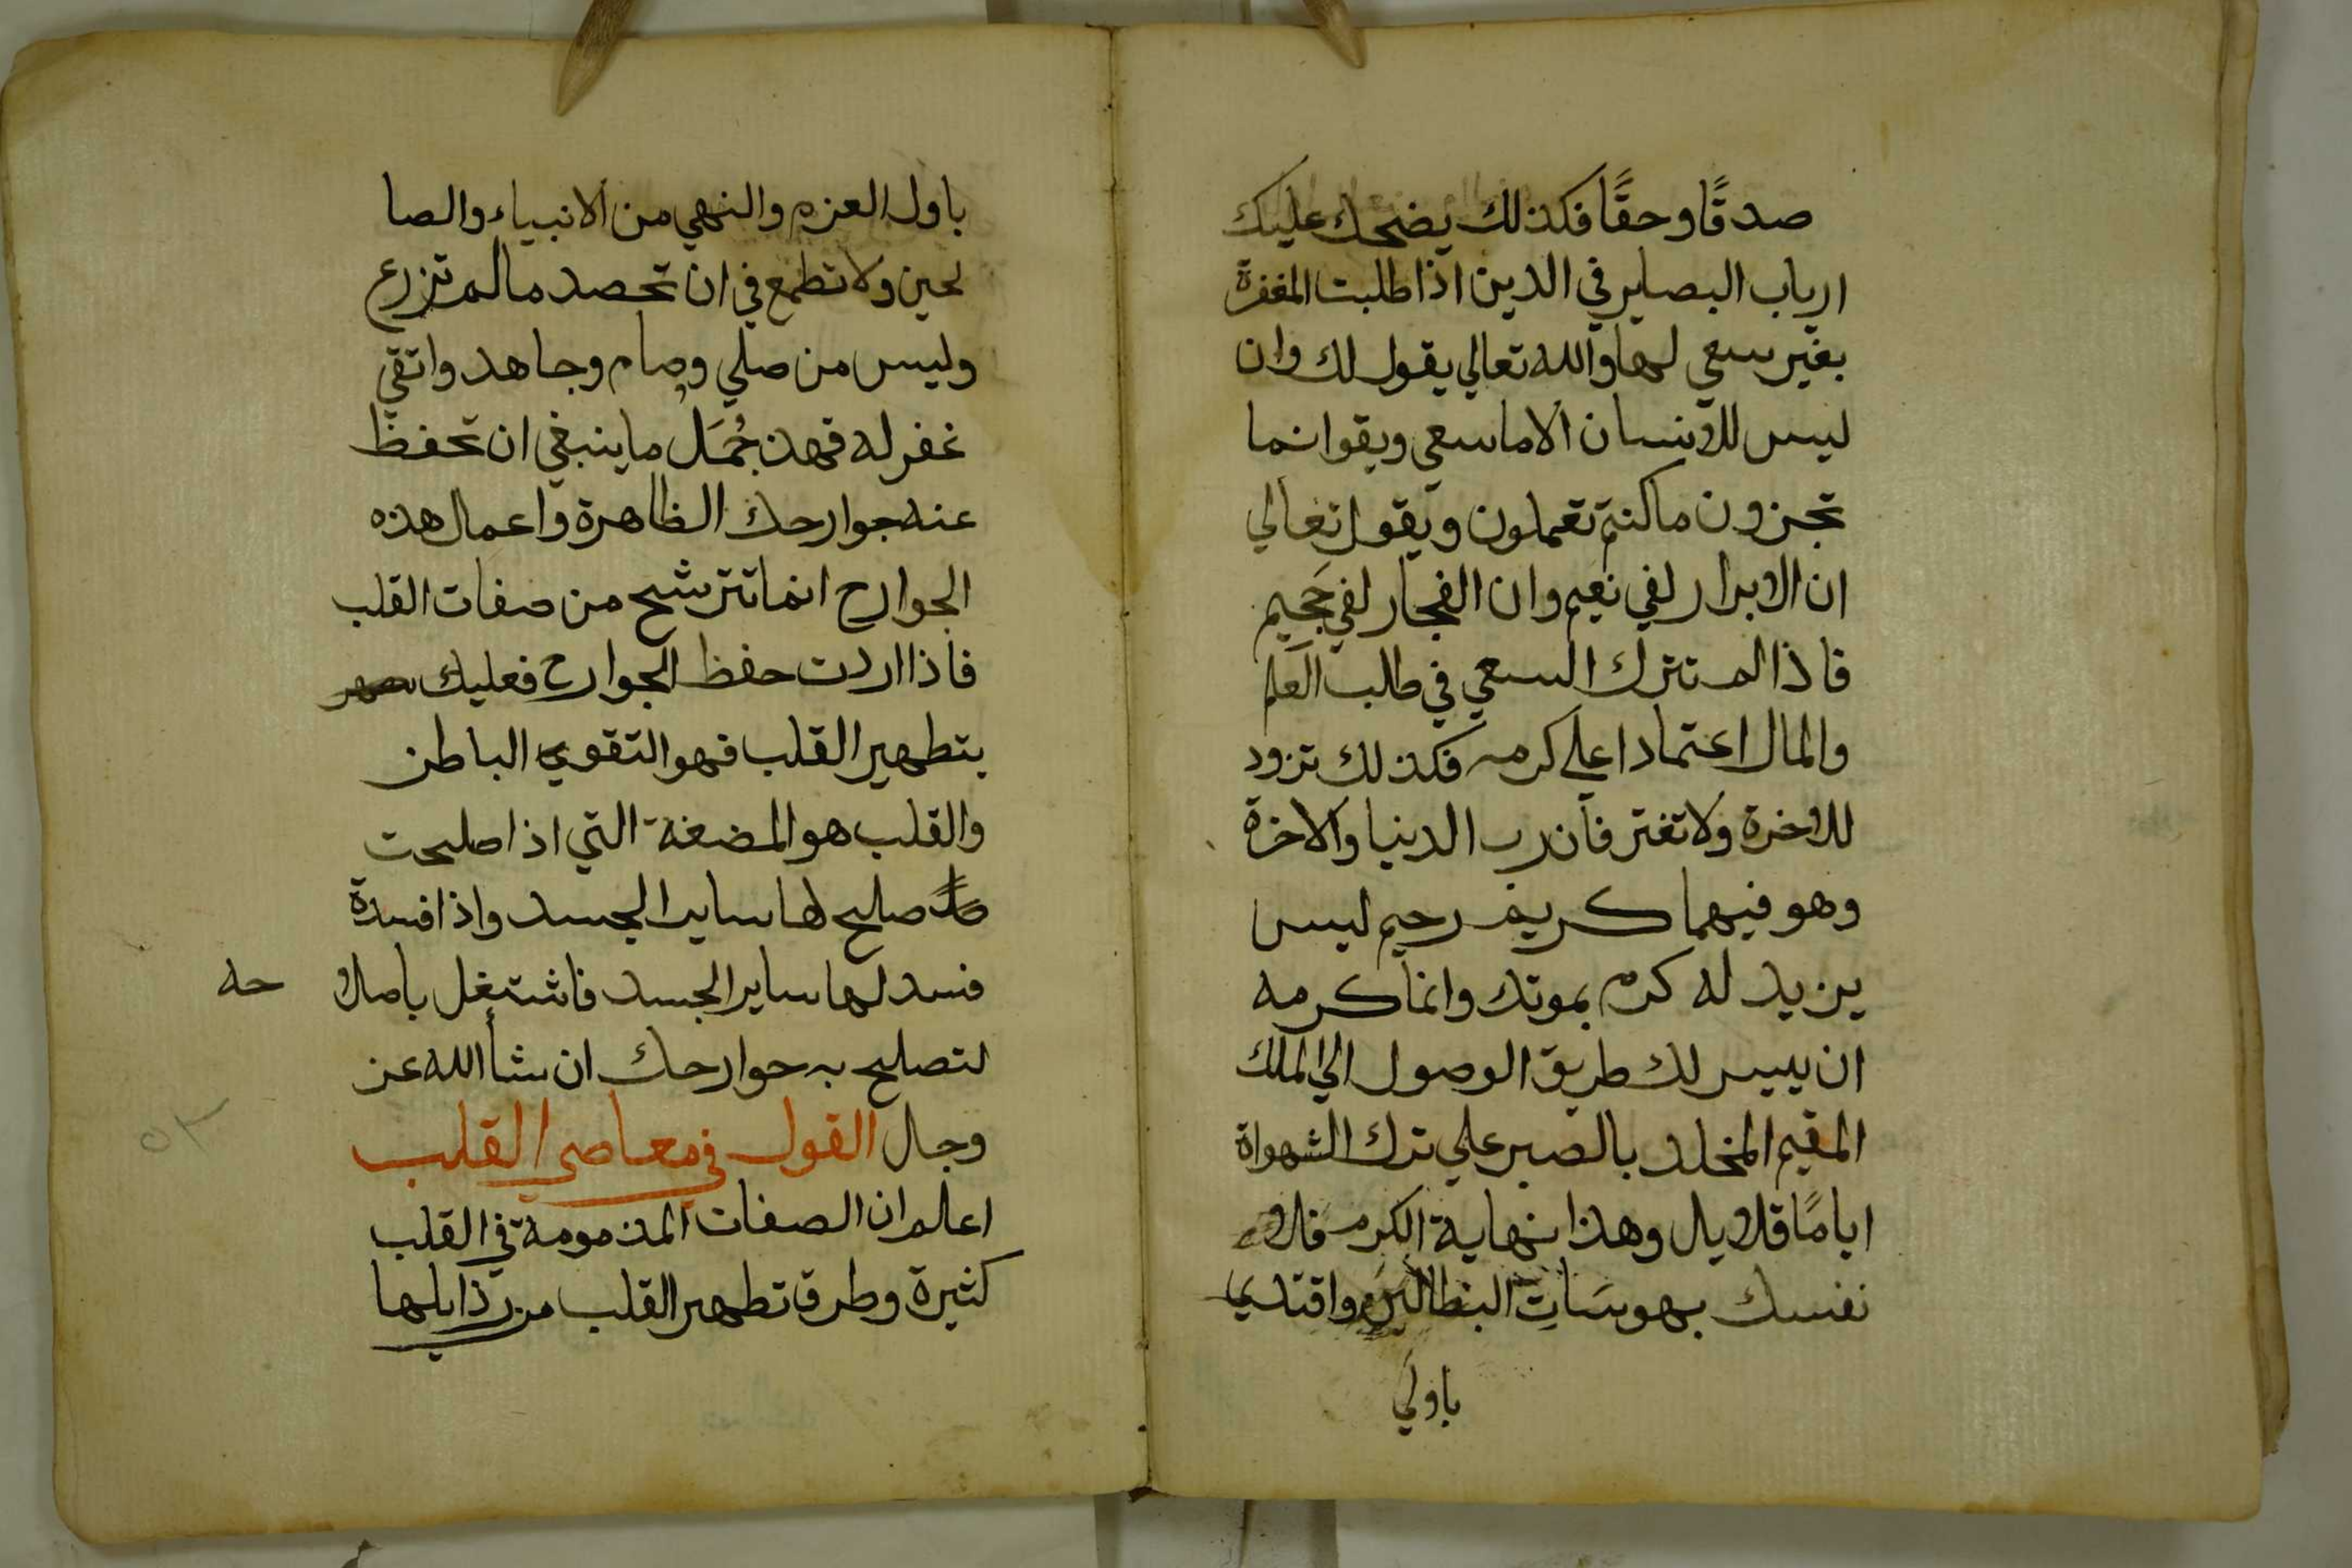 صدقًا وحقًا فكذلك يضحك عليك
ارباب البصاير في الدين اذا طلبت المغفرة
بغير سعي لها والله تعالي يقول لك وان
ليس للانسان الا ما سعي ويقو انما
تجزون ما كنتم تعملون ويقول تعالي
ان الابرار لفي نعيم وان الفجار لفي جَحيم
فاذا لم تترك السعي في طالب العلم
والمال اعتمادا علي كرمه فكذلك تزود
للاخرة ولا تغتر فان رب الدنيا والاخرة
وهو فيهما كريم رحيم ليس
يزيد له كرم بموتك وانما كرمه
ان ييسر لك طريق الوصول الي الملك
المقيم المخلد بالصبر علي ترك الشهواة
ايامًا قلايل وهذا نهاية الكرم فلا
نفسك بهوسَاتِ البطالين واقتدي
باولي
باول العزم والنهي من الانبياء والصا
لحين ولا تطمع في ان تحصد مالم تزرع
وليس من صلي وصام وجاهد واتقي
غفر له فهذ جُمَل ما ينبغي ان تحفظ
عنه جوارحك الظاهرة واعمال هذه
الجوارح انما تترشح من صفات القلب
فاذا اردت حفظ الجوارح فعليك
بتطهير القلب فهو التقوي الباطن
والقلب هو المضغة التي اذا صلحت
صلح لها ساير الجسد واذا فسدة
فسد لها ساير الجسد فاشتغل باصلا حه
لتصلح به جوارحك ان شأ الله عز
وجال القول في معاصي القلب
اعالم ان الصفات المذمومة في القلب
كثيرة وطرق تطهير القلب من رذايلها
٥٣